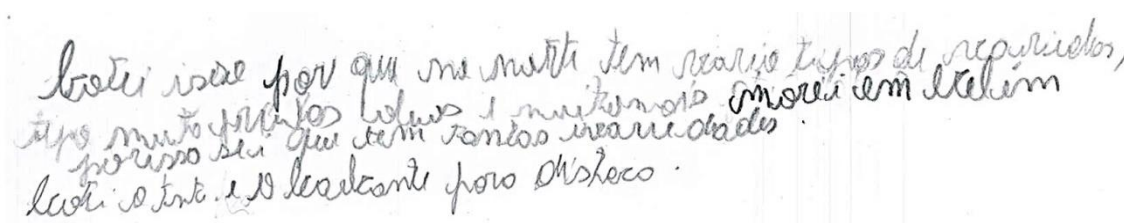 botei isso por que no norte tem vario tipos de
tipo muito frutos e muito mais morei em belém
porisso sei que tem tantas variedades.
botei o e o bastante para